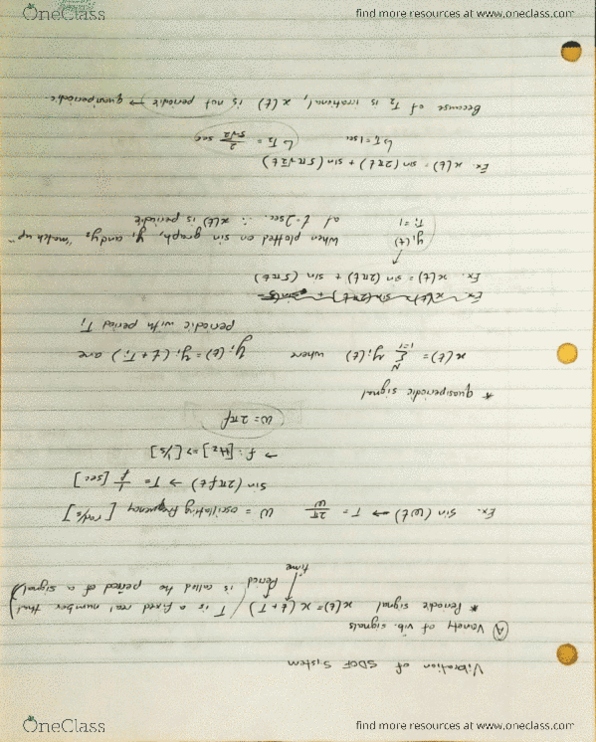 OneClass
find more resources at www.oneclass.com
Vibration of SDOF System
(A) Variety of vib. signals
* Periodic signal x(t) = x(t+T) (T is a fixed real number that
Period is called the period of a signal)
time
Ex. sin(ωt) → T = 2π/ω ω = oscillating frequency [rad/s]
sin(2πft) → T = 1/f [sec]
→ f: [Hz] => [1/s]
ω = 2πf
* quasiperiodic signal
x(t) = Σ_{i=1}^{N} y_i(t) where y_i(t) = y_i(t+T_i) are
periodic with period T_i
Ex. x(t) = sin(2πt) +
Ex. x(t) = sin(2πt) + sin(5πt)
y₁(t) When plotted on sin graph, y₁ and y₂ "match up"
T₁ = 1 at t = 2sec. ∴ x(t) is periodic
Ex. x(t) = sin(2πt) + sin(5π√2t)
↳ T₁ = 1 sec ↳ T₂ = 2/(5√2) sec
Because of T₂ is irrational, x(t) is not periodic → quasiperiodic.
OneClass
find more resources at www.oneclass.com